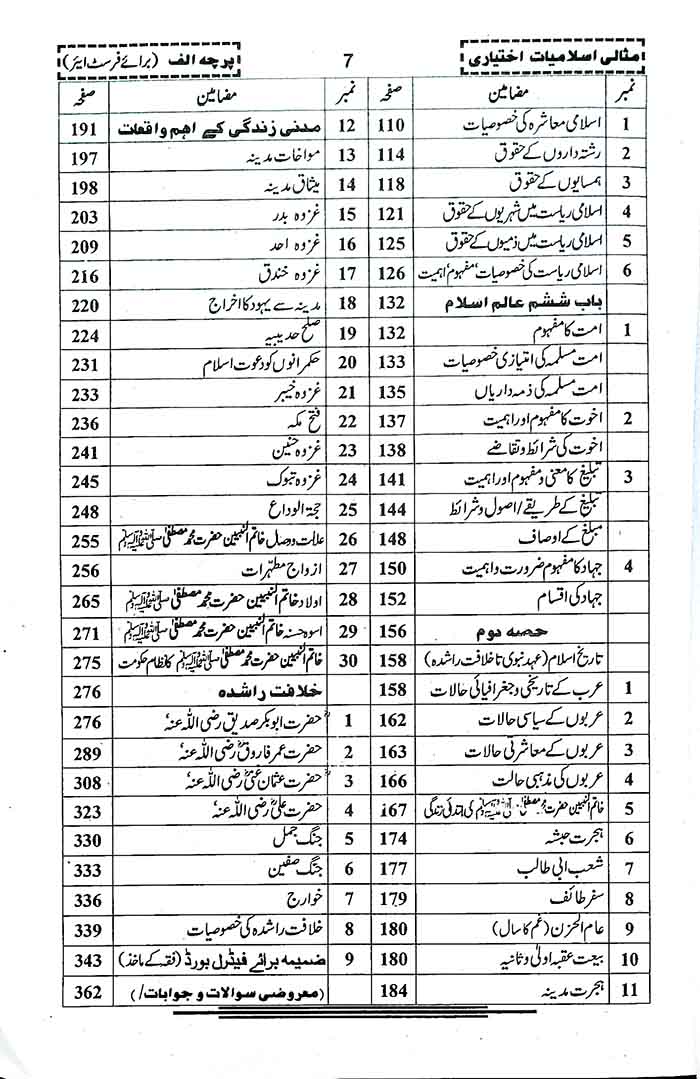 مثالی اسلامیات اختیاری 7 پرچہ الف (برائے فرسٹ ایئر)
نمبر مضامین صفحہ
1 اسلامی معاشرہ کی خصوصیات 110
2 رشتہ داروں کے حقوق 114
3 ہمسایوں کے حقوق 118
4 اسلامی ریاست میں شہریوں کے حقوق 121
5 اسلامی ریاست میں ذمیوں کے حقوق 125
6 اسلامی ریاست کی خصوصیات، مفہوم، اہمیت 126
باب ششم عالم اسلام 132
1 امت کا مفہوم 132
امت مسلمہ کی امتیازی خصوصیات 133
امت مسلمہ کی ذمہ داریاں 135
2 اخوت کا مفہوم اور اہمیت 137
اخوت کی شرائط و تقاضے 138
3 تبلیغ کا معنی و مفہوم اور اہمیت 141
تبلیغ کے طریقے/اصول و شرائط 144
مبلغ کے اوصاف 148
4 جہاد کا مفہوم ضرورت و اہمیت 150
جہاد کی اقسام 152
حصہ دوم 156
تاریخ اسلام (عہد نبوی تا خلافت راشدہ) 158
1 عرب کے تاریخی و جغرافیائی حالات 158
2 عربوں کے سیاسی حالات 162
3 عربوں کے معاشرتی حالات 163
4 عربوں کی مذہبی حالت 166
5 خاتم النبیین حضرت محمد مصطفیٰ ﷺ کی ابتدائی زندگی 167
6 ہجرت حبشہ 174
7 شعب ابی طالب 177
8 سفر طائف 179
9 عام الحزن (غم کا سال) 180
10 بیعت عقبہ اولیٰ و ثانیہ 180
11 ہجرت مدینہ 184
نمبر مضامین صفحہ
12 مدنی زندگی کے اہم واقعات 191
13 مواخات مدینہ 197
14 میثاق مدینہ 198
15 غزوہ بدر 203
16 غزوہ احد 209
17 غزوہ خندق 216
18 مدینہ سے یہود کا اخراج 220
19 صلح حدیبیہ 224
20 حکمرانوں کو دعوت اسلام 231
21 غزوہ خیبر 233
22 فتح مکہ 236
23 غزوہ حنین 241
24 غزوہ تبوک 245
25 حجۃ الوداع 248
26 علالت و وصال خاتم النبیین حضرت محمد مصطفیٰ ﷺ 255
27 ازواج مطہرات 256
28 اولاد خاتم النبیین حضرت محمد مصطفیٰ ﷺ 265
29 اسوہ حسنہ خاتم النبیین حضرت محمد مصطفیٰ ﷺ 271
30 خاتم النبیین حضرت محمد مصطفیٰ ﷺ کا نظام حکومت 275
خلافت راشدہ 276
1 حضرت ابوبکر صدیق رضی اللہ عنہٗ 276
2 حضرت عمر فاروق رضی اللہ عنہٗ 289
3 حضرت عثمان غنی رضی اللہ عنہٗ 308
4 حضرت علی رضی اللہ عنہٗ 323
5 جنگ جمل 330
6 جنگ صفین 333
7 خوارج 336
8 خلافت راشدہ کی خصوصیات 339
9 ضمیمہ برائے فیڈرل بورڈ (فقہ کے ماخذ) 343
(معروضی سوالات و جوابات/) 362